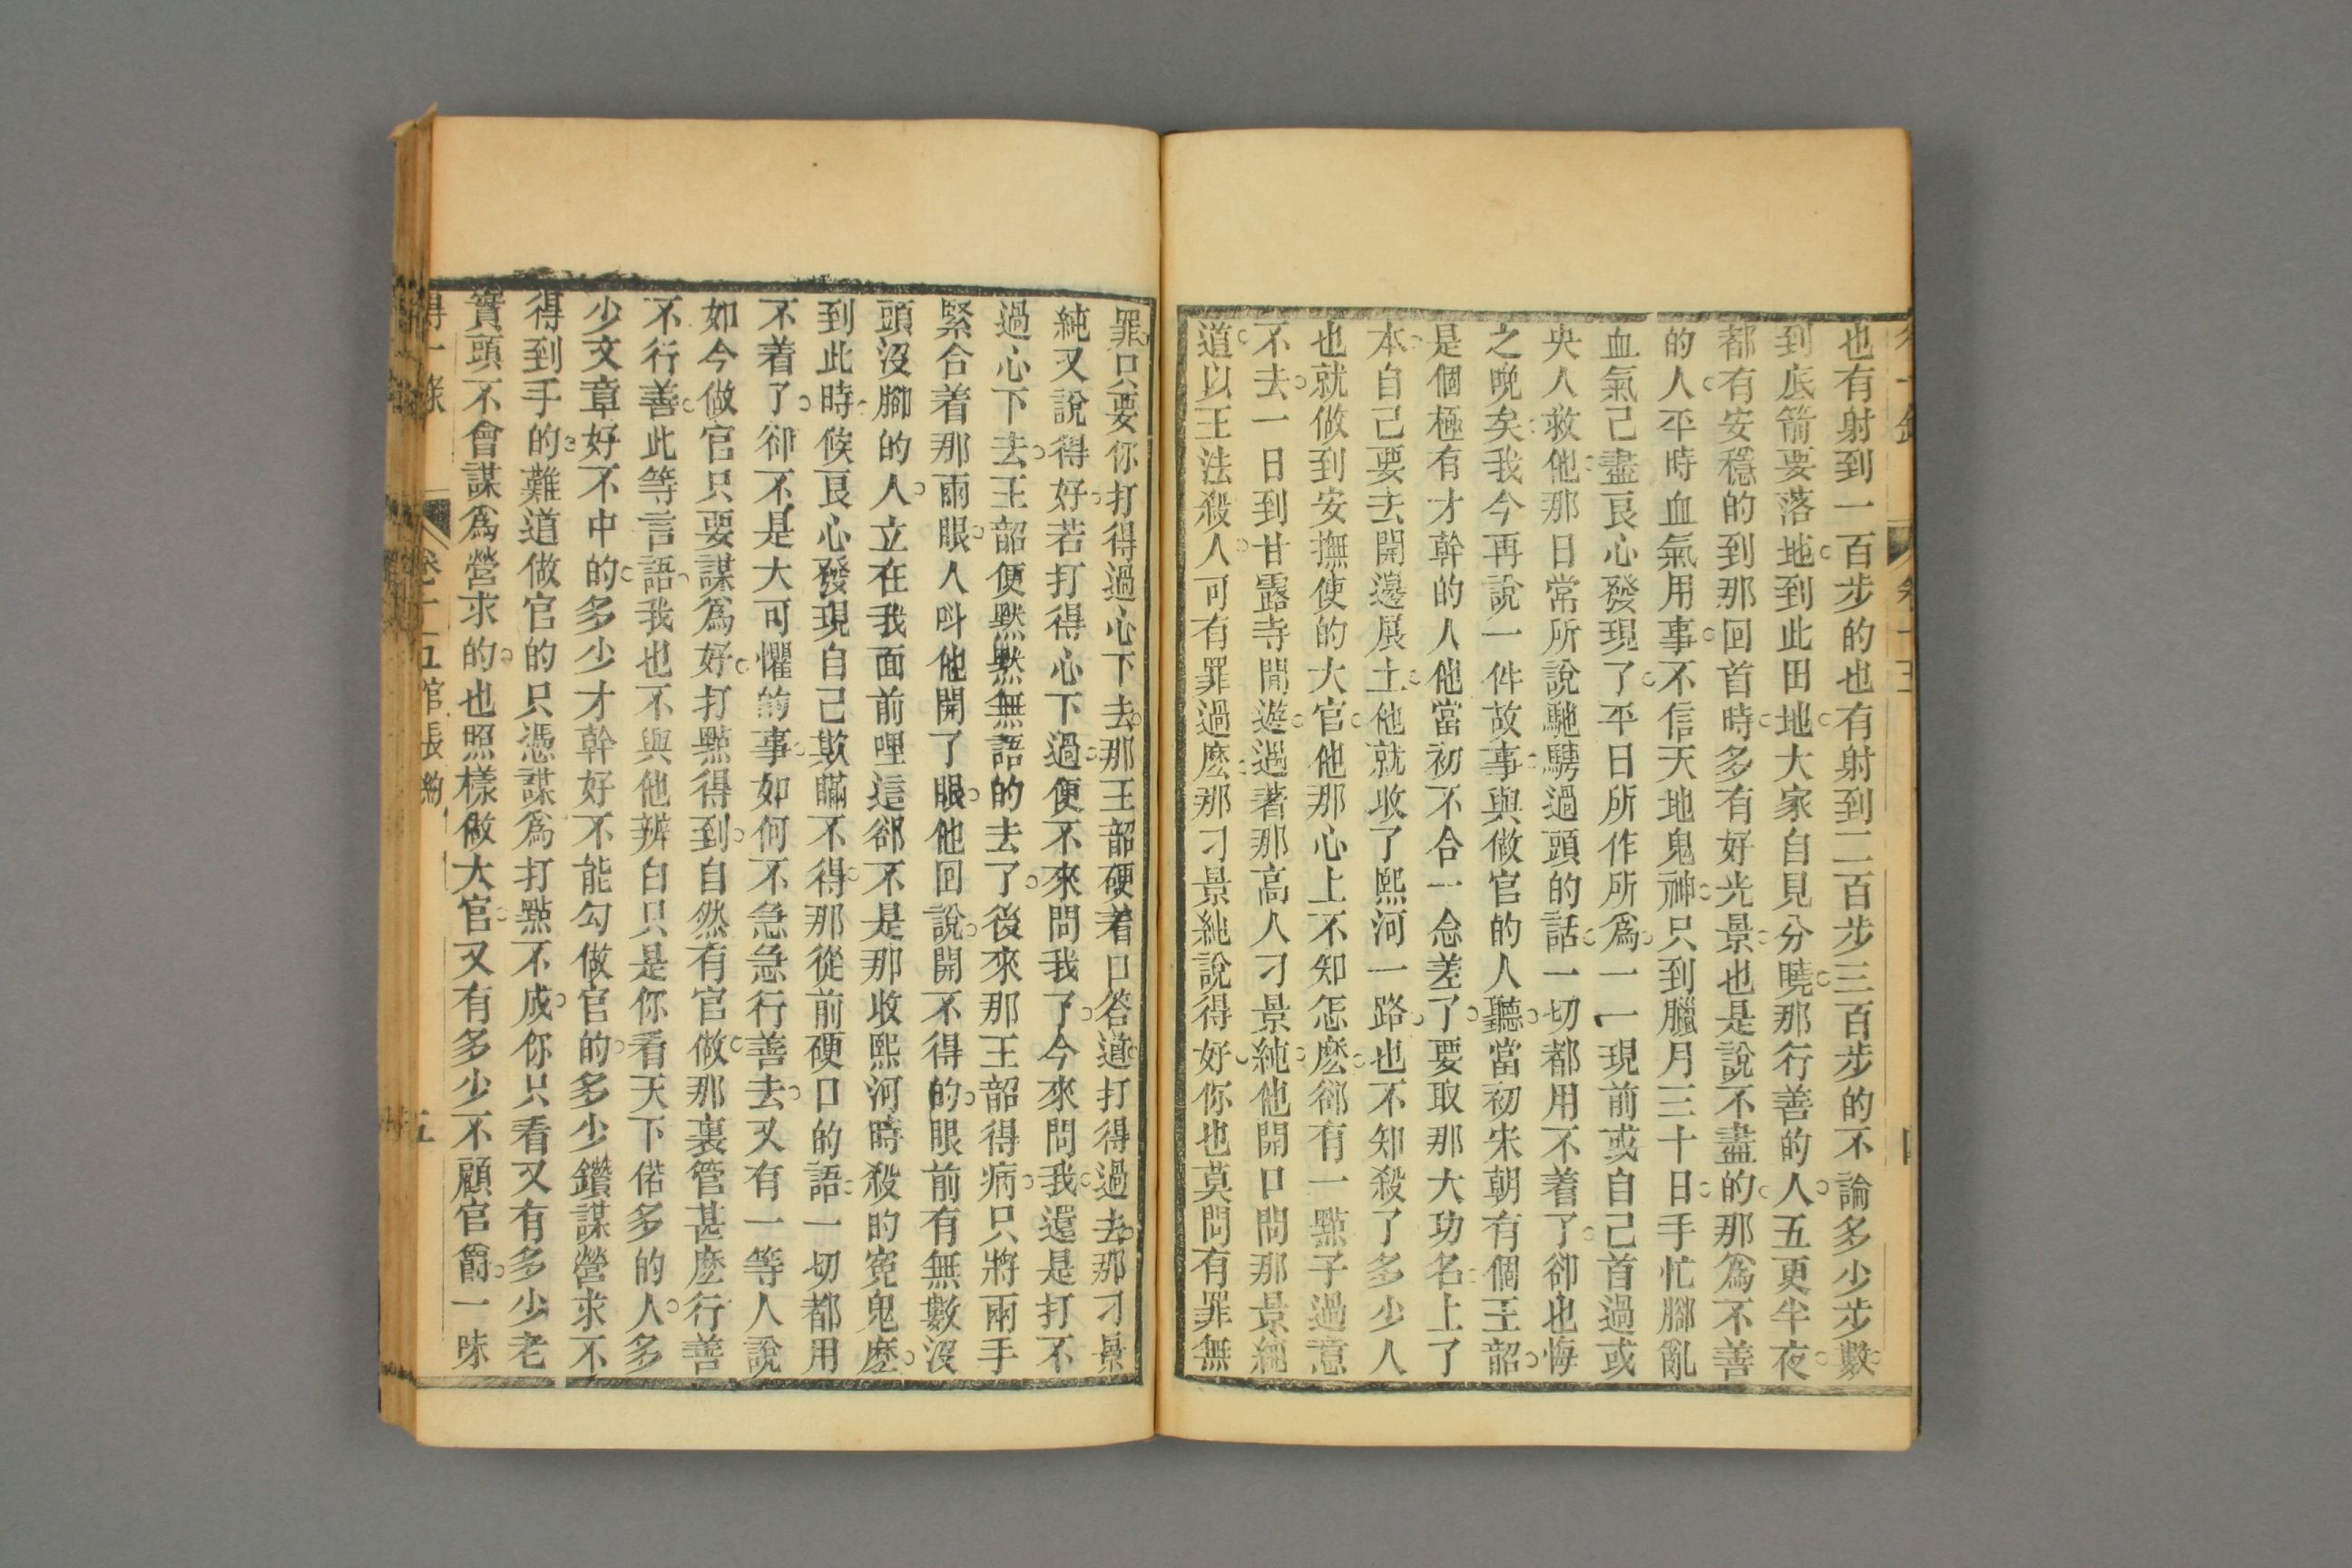 也有射到一百步的也有射到二百步三百步的不論多少步數
到底箭要落地到此田地大家自見分曉那行善的人五更半夜
都有安穩的到那回首時多有好光景也是說不盡的那為不善
的人平時血氣用事不信天地鬼神只到臘月三十日手忙腳亂
血氣己盡良心發現了平日所作所爲一一現前或自己首過或
央人救他那日常所說馳騁過頭的話一切都用不着了卻也悔
之晚矣我今再說一件故事與做官的人聽當初宋朝有個王韶
是個極有才幹的人他當初不合一念差了要取那大功名上了
本自己要去開邊展土他就收了熙河一路也不知殺了多少人
也就做到安撫使的大官他那心上不知怎麽郤有一點子過意
不去一日到甘露寺閒遊遇著那高人刁景純他開口問那景純
道以王法殺人可有罪過麽那刁景純說得好你也莫問有罪無
罪只要你打得過心下去那王韶硬着口答道打得過去那刁景
純又說得好若打得心下過便不來問我了今來問我還是打不
過心下去王韶便黙黙無語的去了後來那王韶得病只將兩手
緊合着那兩眼人呌他開了眼他回說開不得的眼前有無數沒
頭沒腳的人立在我面前哩這郤不是那收熙河時殺的寃鬼麽
到此時候良心發現自己欺瞞不得那從前硬口的語一切都用
不着了卻不是大可懼的事如何不急急行善去又有一等人說
如今做官只要謀爲好打點得到自然有官做那裏管甚麽行善
不行善此等言語我也不與他辨白只是你看天下偌多的人多
少文章好不中的多少才幹好不能勾做官的多少鑽謀營求不
得到手的難道做官的只憑謀爲打點不成你只看又有多少老
實頭不會謀爲營求的也照樣做大官又有多少不顧官爵一味
得一錄 卷十五官長約 五